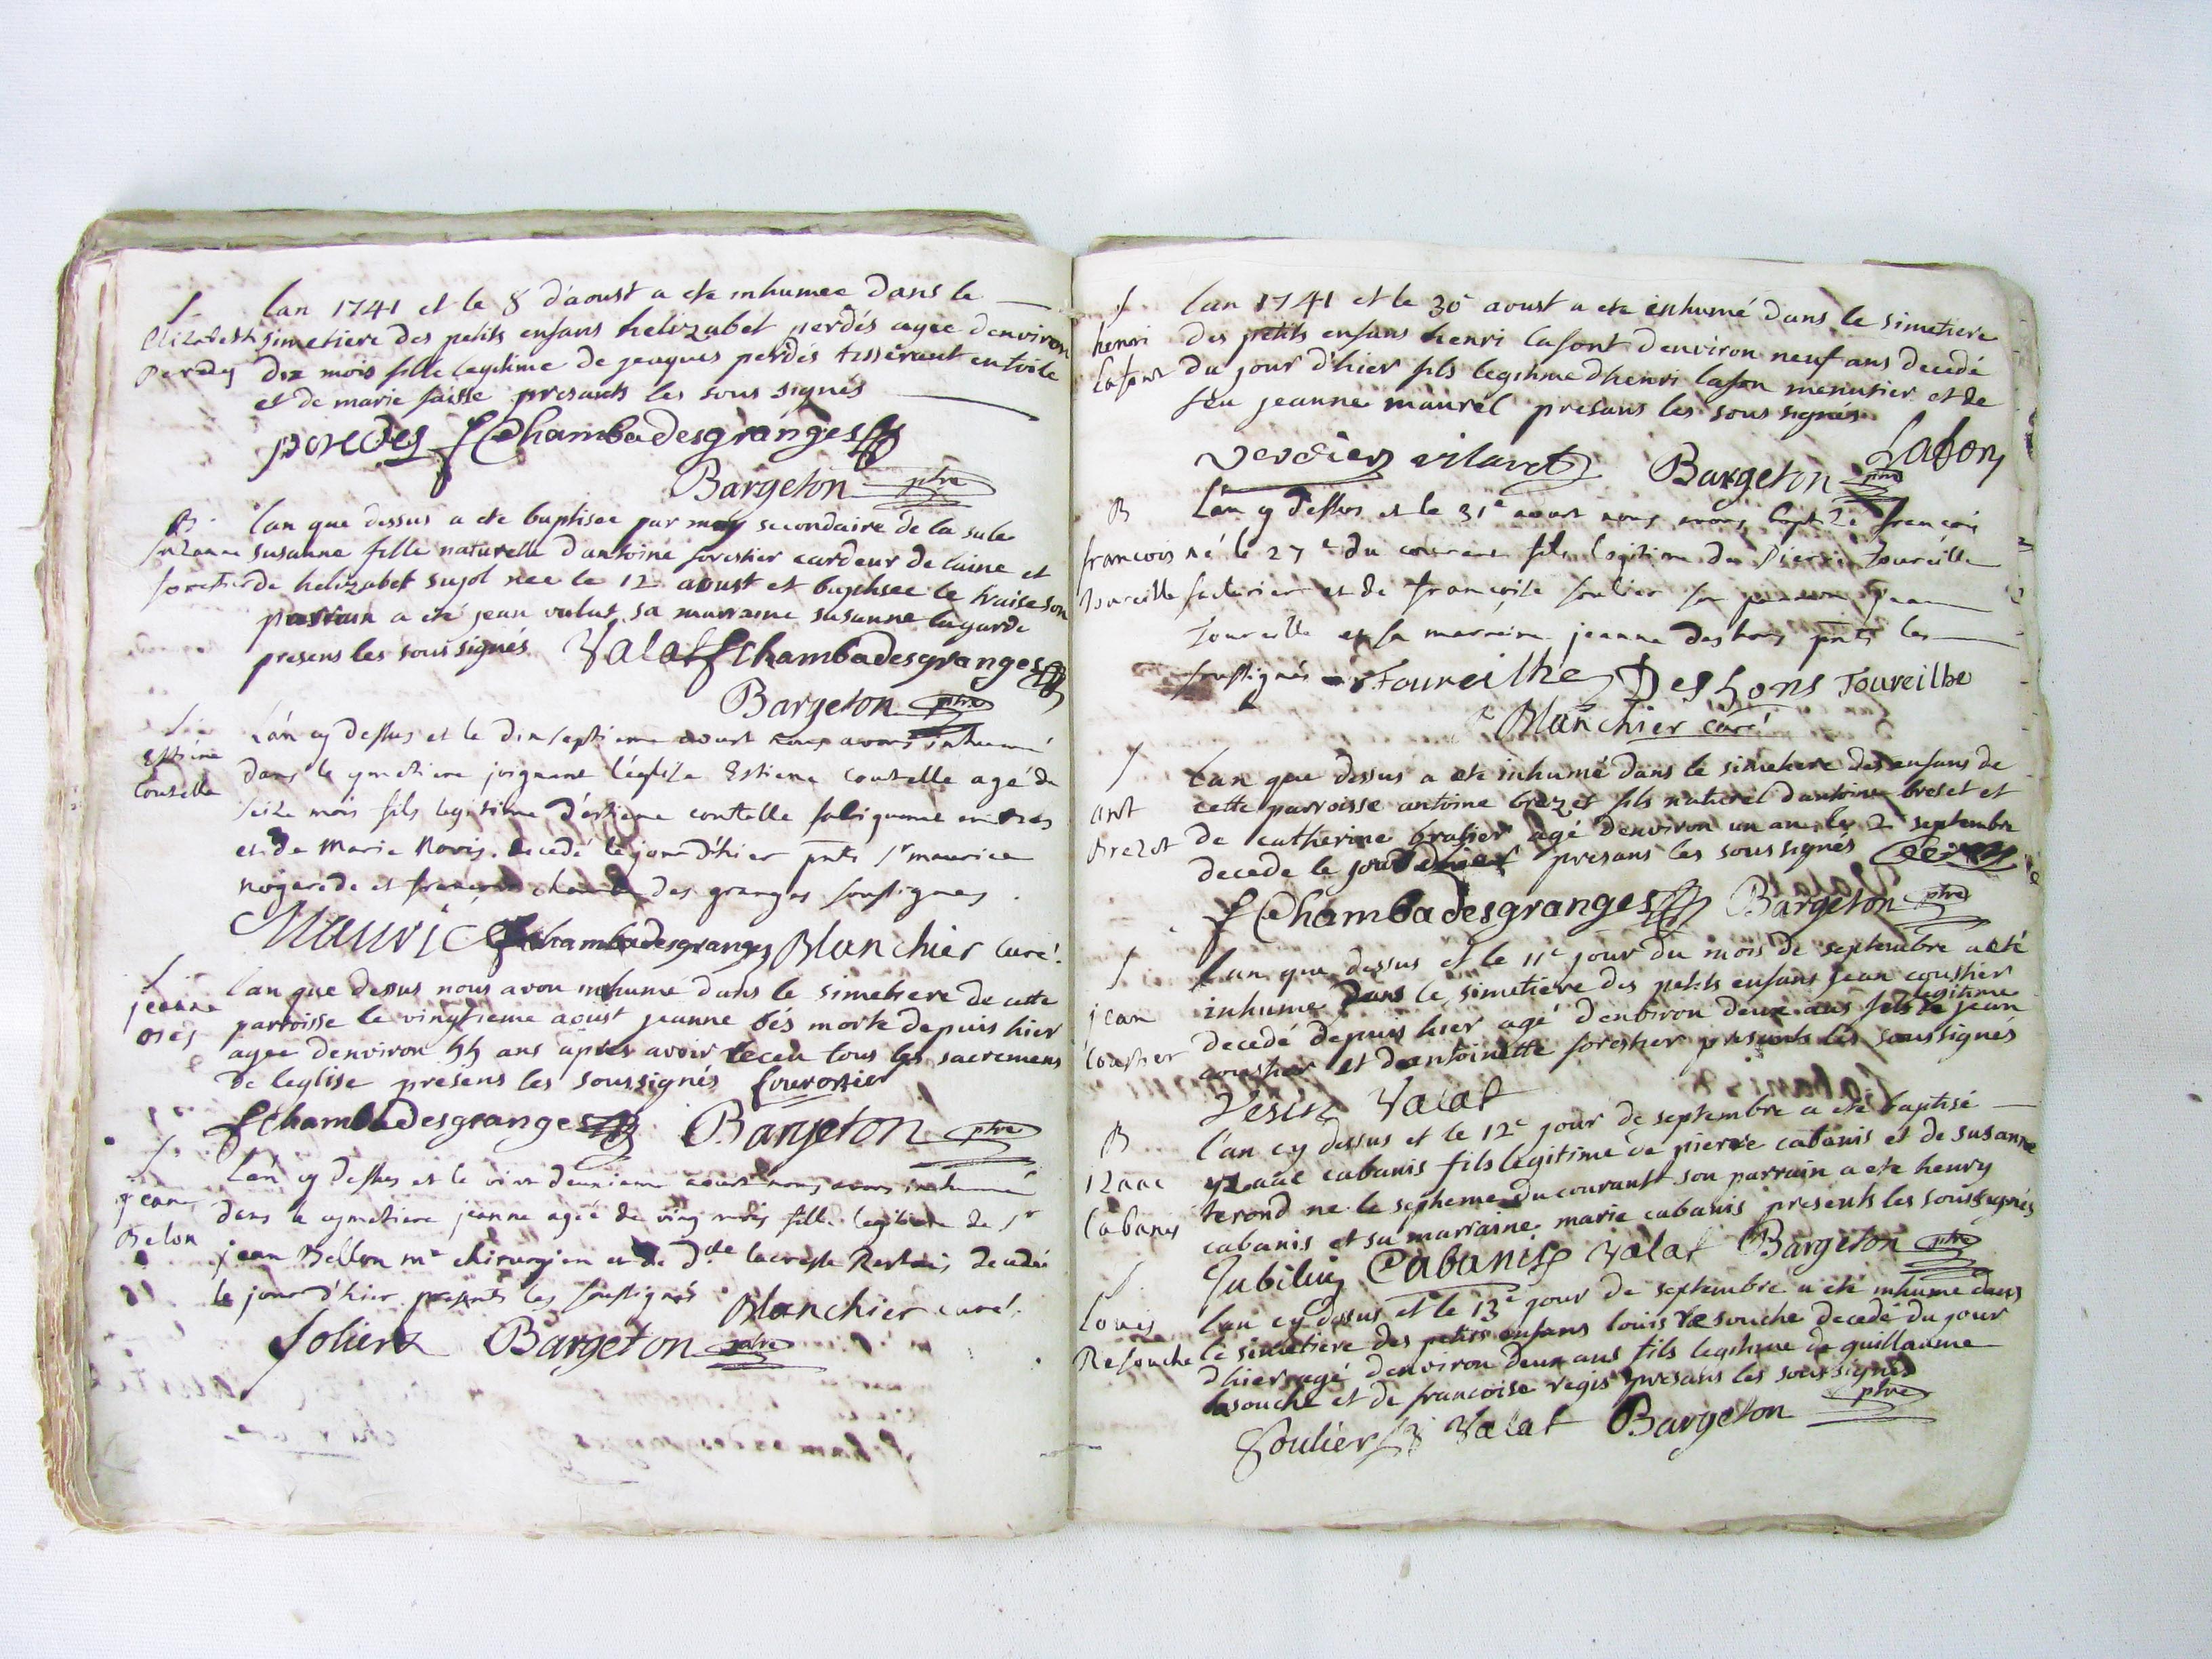 S
Elizabeth
Perdes
lan 1741 et le 8 d'aoust a ete inhumee dans le
simetiere des petits enfans helizabet perdés agee denviron
dix mois fille legitime de jeaques perdés tisserant en toile
et de marie faisse presants les sous signés
perdes f Chambadesgranges
Bargeton ptre
B
suzanne
foretier
lan que dessus a ete baptisee par moy secondaire de la sale
susanne fille naturelle dantoine forestier cardeur de laine et
de helizabet sujol nee le 12 aoust et baptisee le traise son
parrain a eté jean valat sa marraine susanne lagarde
presens les sous signés Valat f Chambadesgranges
Bargeton ptre
S
Estiene
Coutelle
L'an cy dessus et le dixseptieme aoust nous avons inhumé
dans le cymetiere joignant l'eglize Estiene coutelle agé de
seize mois fils legitime d'estiene coutelle
et de Marie Noris decedé le jour d'hier pnts sr maurice
nogarede et françois chamba des granges soussignes
Mauric f Chambadesgranges Blanchier curé
S
jeanne
lan que dessus nous avon inhume dans le simetiere de cette
parroisse le vingtieme aoust jeanne morte depuis hier
agee denviron 55 ans apres avoir receu tous les sacremens
de leglise presens les soussignés
f Chambadesgranges Bargeton ptre
S
jeane
Belon
L'an cy dessus et le vint deuxieme aoust nous avons inhumé
dans le cymetiere jeanne ageé de ving mois fille legitime de sr
jean Bellon me chirurgien et de dlle decedée
le jour d'hier presents les soussignés Blanchier curé
Soliers Bargeton ptre
S
henri
lafont
lan 1741 et le 30e aoust a ete inhumé dans le simetiere
des petits enfans henri lafont denviron neuf ans decedé
du jour d'hier fils legitime dhenri lafon menusier et de
feu jeanne maurel presans les sous signés
Verdier vilaret Bargeton ptre Lafon
B
francois
Toureille
L'an cy dessus et le 31e aoust nous avons baptizé francois
né le 27e du courant fils legitime de Pierre Toureille
facturier et de françoise soulier son parrain jean
Toureille et sa marraine jeanne deshons pnts les
soussignés Toureilhe Deshons Toureilhe
Blanchier curé
S
ant
Brezet
lan que dessus a ete inhumé dans le simetiere des enfans de
cette parroisse antoine brezet fils naturel dantoine breset et
de catherine agé denviron un an le 2 septembre
decede le jour presans les soussignés
f Chambadesgranges Bargeton ptre
S
jean
Coustier
lan que dessus et le 11e jour du mois de septembre a eté
inhume dans le simetiere des petits enfans jean coustier
decedé depuis hier agé denbiron deux ans fils legitime de jean
coustier et dantoinette forestier presants les soussignes
Valat
B
izaac
Cabanis
l'an cy dessus et le 12e jour de septembre a ete baptisé
yzaac cabanis fils legitime de pierre cabanis et de susanne
terond ne le septieme du courant son parrain a ete henry
cabanis et sa marraine marie cabanis presents les soussignés
Cabanis Valat Bargeton ptre
S
Louis
Resouche
lan cy dessus et le 13e jour de septembre a eté inhume dans
le simetiere des petits enfans louis resouche decedé du jour
dhier agé denviron deux ans fils legitime de guillaume
resouche et de francoise regis presans les sous signés
Soulier Valat Bargeton ptre